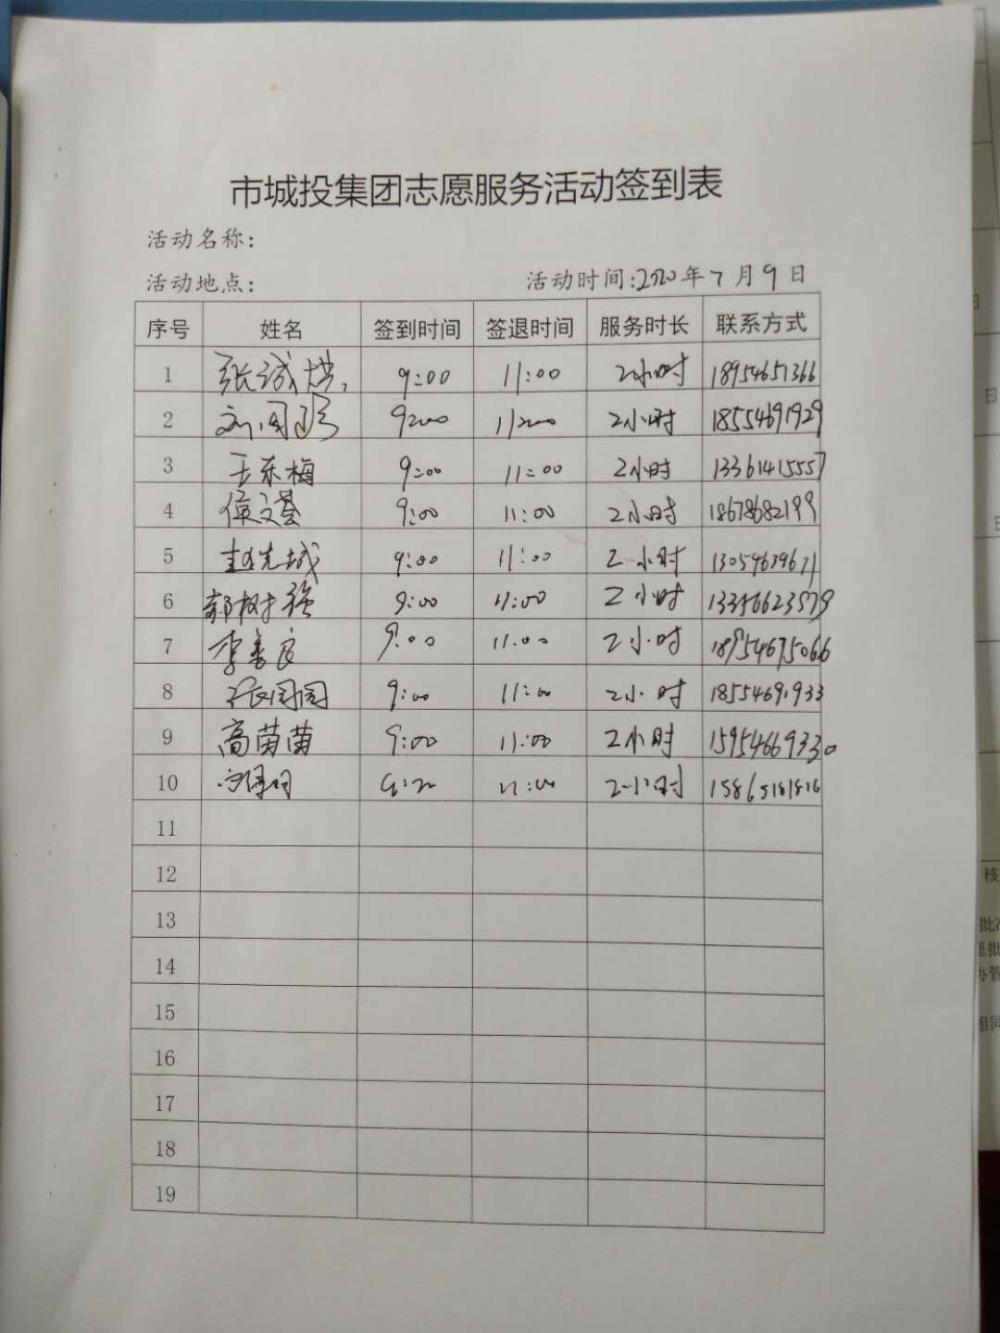 市城投集团志愿服务活动签到表
活动名称:
活动地点: 活动时间:2020年7月9日
序号 姓名 签到时间 签退时间 服务时长 联系方式
1 张诚 9:00 11:00 2小时 18954651366
2 刘国 9:00 11:00 2小时 18554691929
3 王东梅 9:00 11:00 2小时 13361415557
4 侯文荟 9:00 11:00 2小时 18678682199
5 赵先城 9:00 11:00 2小时
6 郭树强 9:00 11:00 2小时
7 李善良 9:00 11:00 2小时 18954675066
8 张園園 9:00 11:00 2小时 18554691933
9 高茵茵 9:00 11:00 2小时 15954669330
10 9:00 11:00 2小时 15865181816
11
12
13
14
15
16
17
18
19
日
核